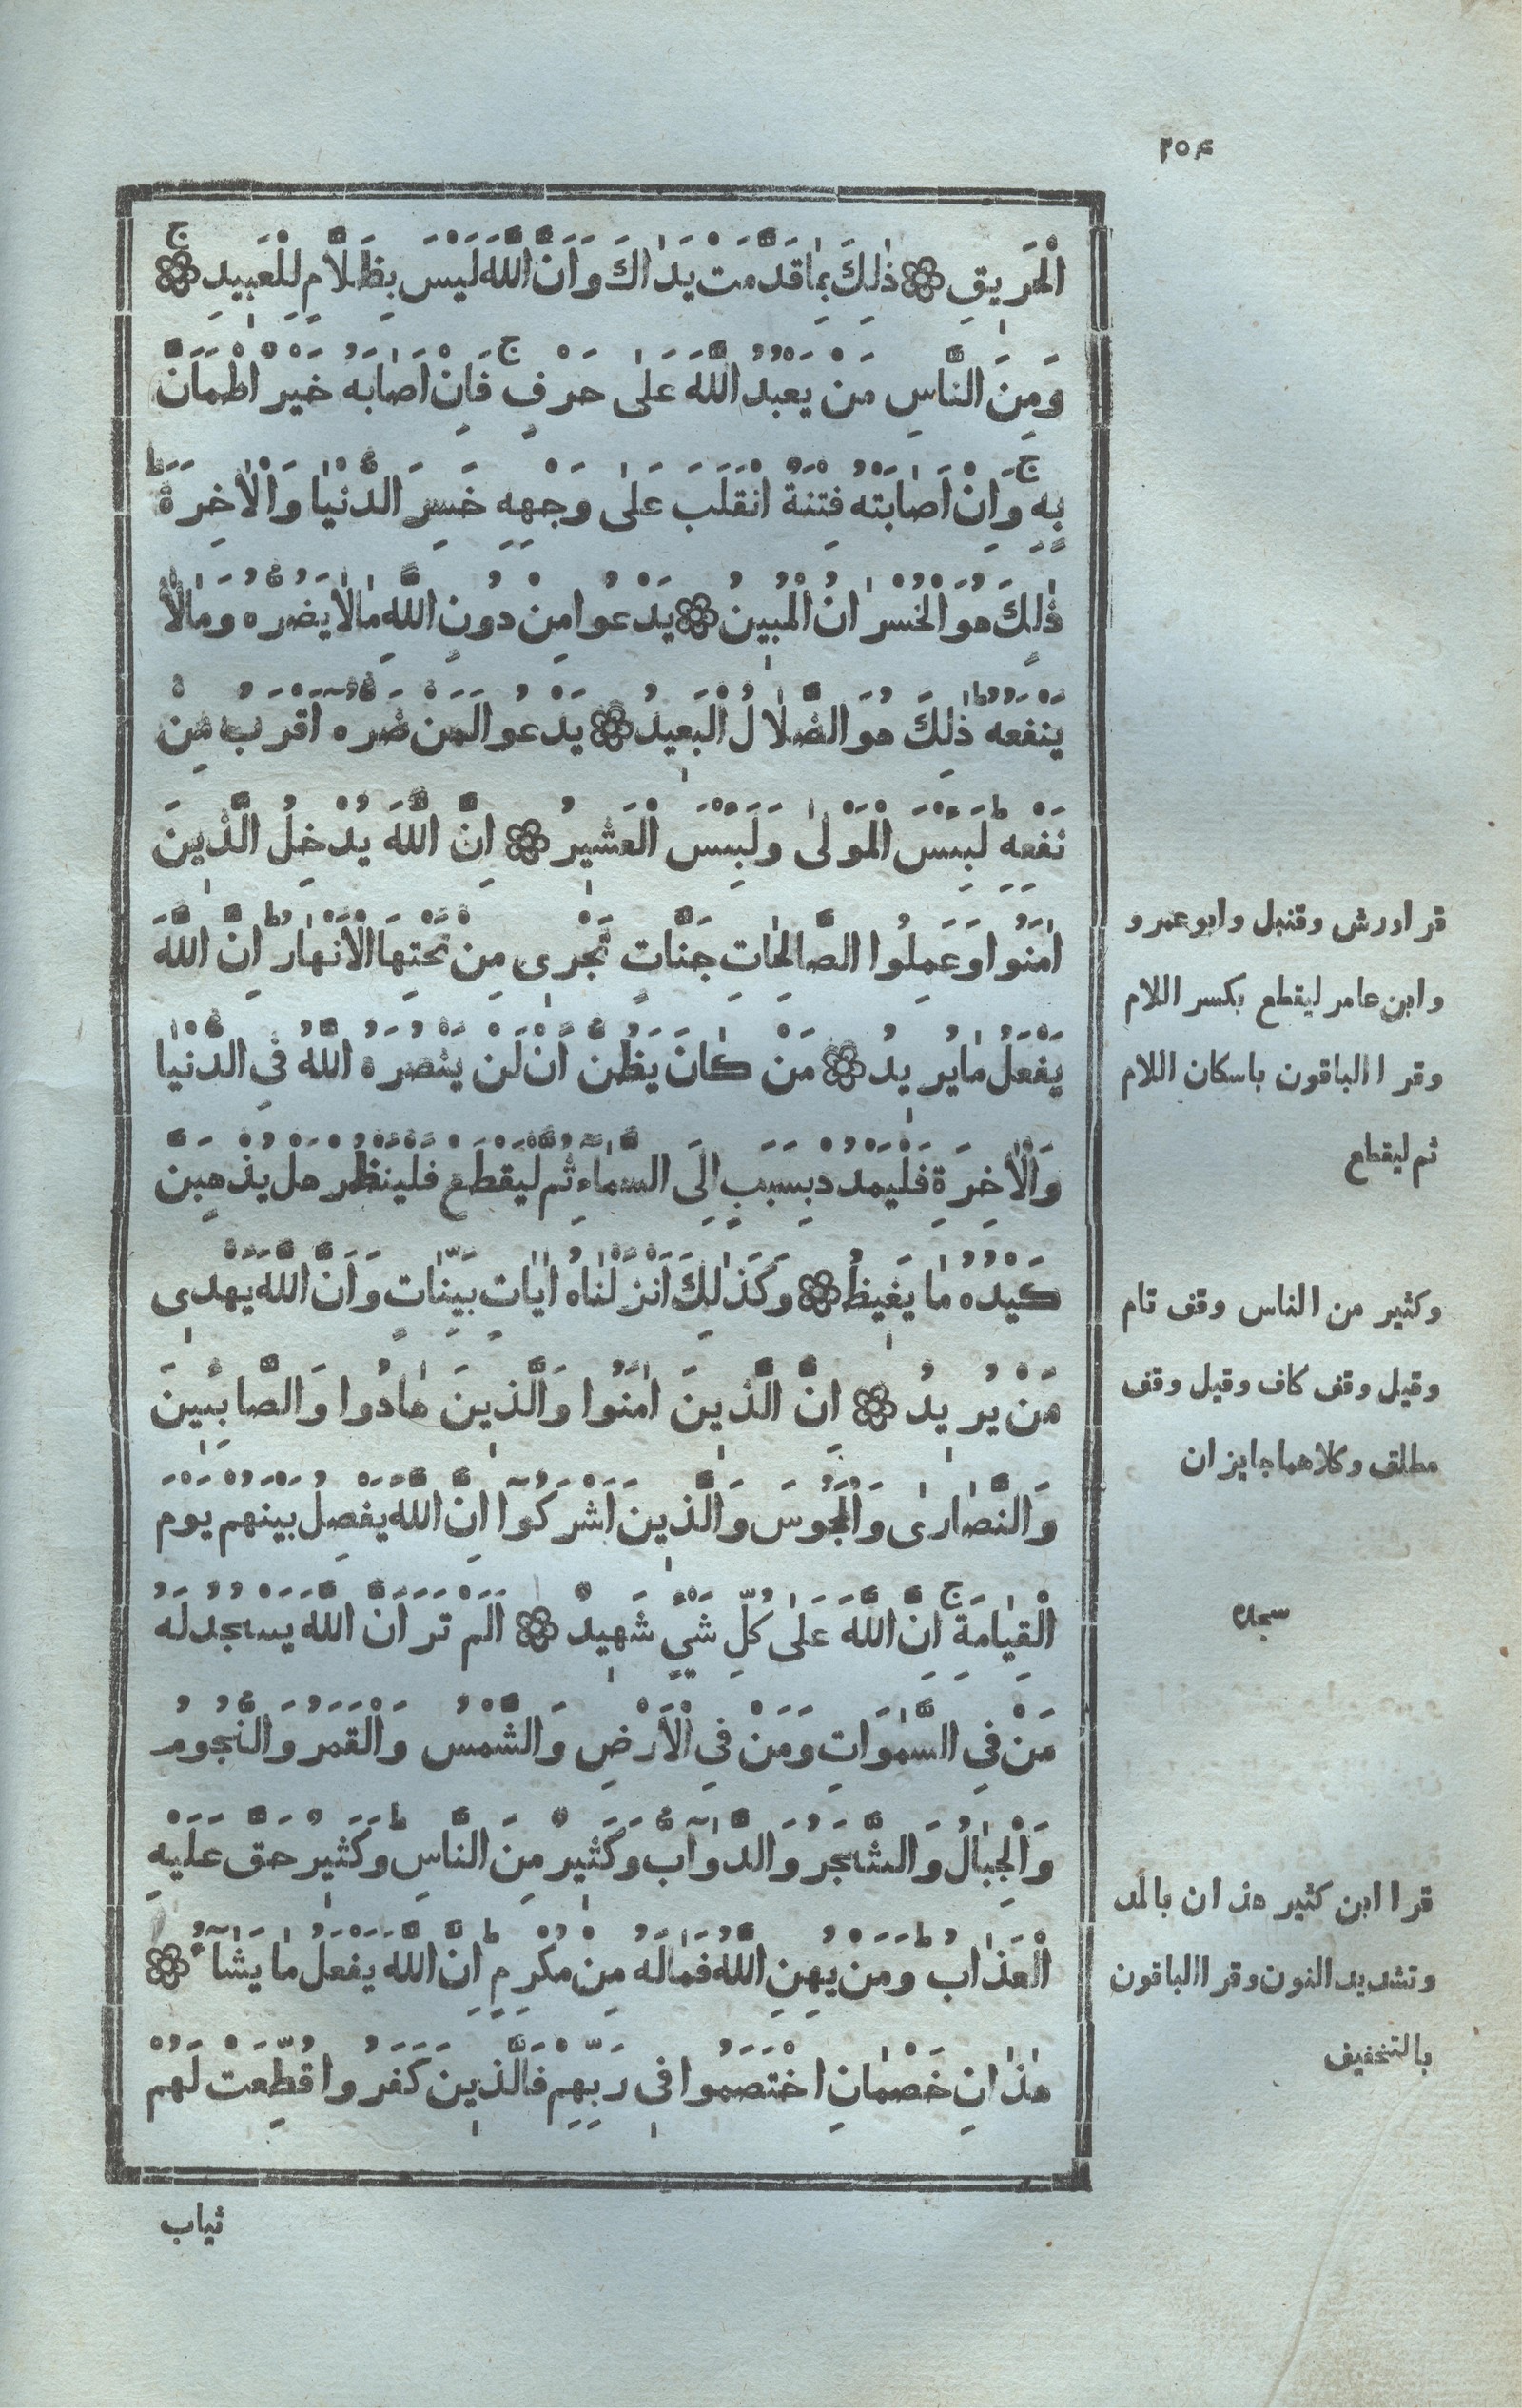 ٢٥٤
الْحَرِيقِ ۝ ذٰلِكَ بِمَا قَدَّمَتْ يَدَاكَ وَاَنَّ اللّٰهَ لَيْسَ بِظَلَّامٍ لِلْعَبِيدِ ج ۝
وَمِنَ النَّاسِ مَنْ يَعْبُدُ اللّٰهَ عَلٰى حَرْفٍ ج فَاِنْ اَصَابَهُ خَيْرٌ اطْمَاَنَّ
بِهِ ج وَاِنْ اَصَابَتْهُ فِتْنَةٌ انْقَلَبَ عَلٰى وَجْهِهِ خَسِرَ الدُّنْيَا وَالْاٰخِرَةَ ط
ذٰلِكَ هُوَ الْخُسْرَانُ الْمُبِينُ ۝ يَدْعُوا مِنْ دُونِ اللّٰهِ مَا لَا يَضُرُّهُ وَمَا لَا
يَنْفَعُهُ ط ذٰلِكَ هُوَ الضَّلَالُ الْبَعِيدُ ۝ يَدْعُوا لَمَنْ ضَرُّهُ اَقْرَبُ مِنْ
نَفْعِهِ ط لَبِئْسَ الْمَوْلٰى وَلَبِئْسَ الْعَشِيرُ ۝ اِنَّ اللّٰهَ يُدْخِلُ الَّذِينَ
اٰمَنُوا وَعَمِلُوا الصَّالِحَاتِ جَنَّاتٍ تَجْرِى مِنْ تَحْتِهَا الْاَنْهَارُ ط اِنَّ اللّٰهَ
قراورش وقنبل وابوعمرو
يَفْعَلُ مَا يُرِيدُ ۝ مَنْ كَانَ يَظُنُّ اَنْ لَنْ يَنْصُرَهُ اللّٰهُ فِى الدُّنْيَا
وابن عامر ليقطع بكسر اللام
وقرا الباقون باسكان اللام
وَالْاٰخِرَةِ فَلْيَمْدُدْ بِسَبَبٍ اِلَى السَّمَاءِ ثُمَّ لْيَقْطَعْ فَلْيَنْظُرْ هَلْ يُذْهِبَنَّ
ثم ليقطع
كَيْدُهُ مَا يَغِيظُ ۝ وَكَذٰلِكَ اَنْزَلْنَاهُ اٰيَاتٍ بَيِّنَاتٍ وَاَنَّ اللّٰهَ يَهْدِى
وكثير من الناس وقف تام
مَنْ يُرِيدُ ۝ اِنَّ الَّذِينَ اٰمَنُوا وَالَّذِينَ هَادُوا وَالصَّابِئِينَ
وقيل وقف كاف وقيل وقف
مطلق وكلاهما جايزان
وَالنَّصَارٰى وَالْمَجُوسَ وَالَّذِينَ اَشْرَكُوٓا اِنَّ اللّٰهَ يَفْصِلُ بَيْنَهُمْ يَوْمَ
الْقِيَامَةِ ج اِنَّ اللّٰهَ عَلٰى كُلِّ شَيْءٍ شَهِيدٌ ۝ اَلَمْ تَرَ اَنَّ اللّٰهَ يَسْجُدُ لَهُ
سجدة
مَنْ فِى السَّمٰوَاتِ وَمَنْ فِى الْاَرْضِ وَالشَّمْسُ وَالْقَمَرُ وَالنُّجُومُ
وَالْجِبَالُ وَالشَّجَرُ وَالدَّوَآبُّ وَكَثِيرٌ مِنَ النَّاسِ ط وَكَثِيرٌ حَقَّ عَلَيْهِ
الْعَذَابُ ط وَمَنْ يُهِنِ اللّٰهُ فَمَا لَهُ مِنْ مُكْرِمٍ ط اِنَّ اللّٰهَ يَفْعَلُ مَا يَشَآءُ ۝
قرا ابن كثير هذان بالمد
وتشديد النون وقرا الباقون
هٰذَانِ خَصْمَانِ اخْتَصَمُوا فِى رَبِّهِمْ فَالَّذِينَ كَفَرُوا قُطِّعَتْ لَهُمْ
بالتخفيف
ثياب